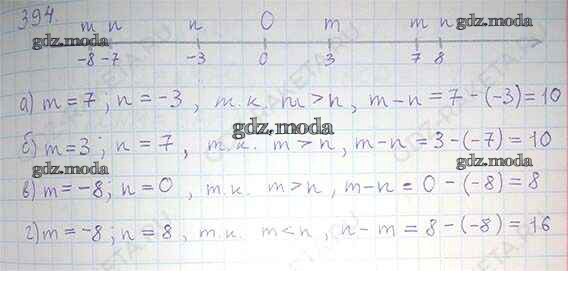 394.
m n n 0 m m n
gdz.moda gdz.moda
-8 -7 -3 0 3 7 8
а) m = 7; n = -3, т.к. m > n, m - n = 7 - (-3) = 10
gdz.moda
б) m = 3; n = 7, т.к. m > n, m - n = 3 - (-7) = 10
gdz.moda gdz.moda
в) m = -8; n = 0, т.к. m > n, m - n = 0 - (-8) = 8
г) m = -8; n = 8, т.к. m < n, n - m = 8 - (-8) = 16